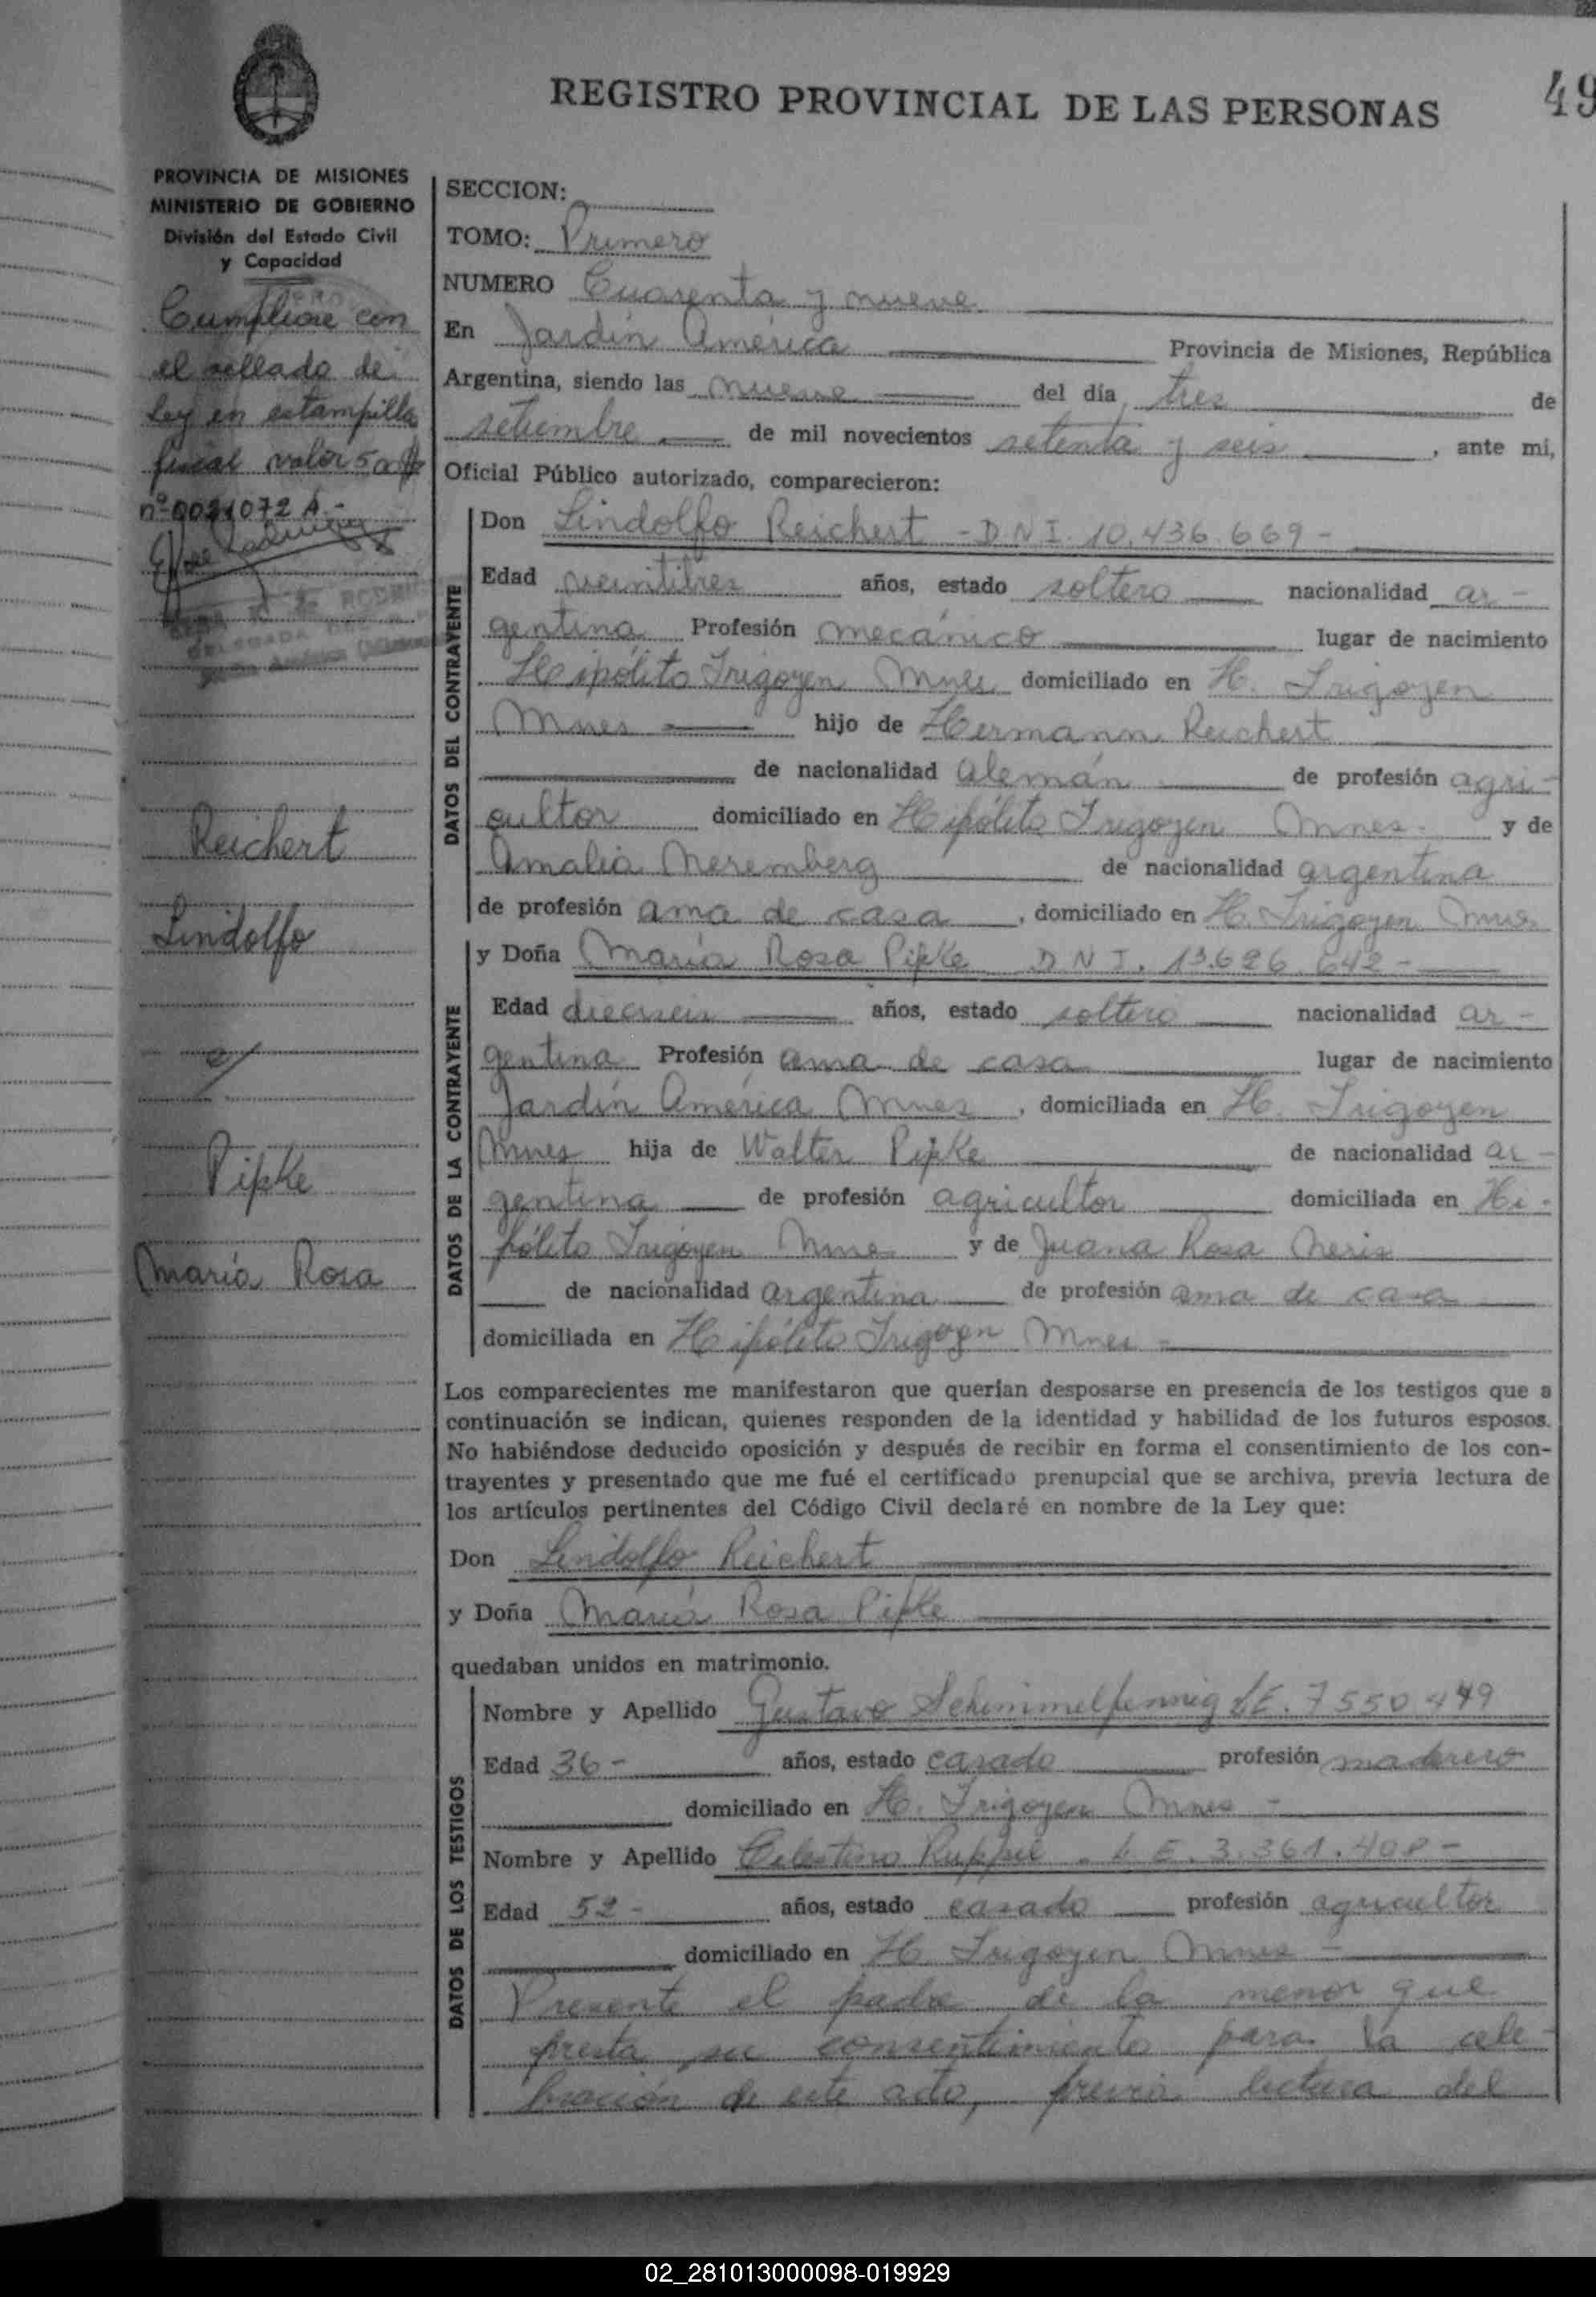 REGISTRO PROVINCIAL DE LAS PERSONAS
49
PROVINCIA DE MISIONES
MINISTERIO DE GOBIERNO
División del Estado Civil
y Capacidad
Cumplióse con
el sellado de
Ley en estampilla
fiscal valor 50 $
nº 0021072 A.-
Reichert
Lindolfo
y
Pipke
María Rosa
SECCION:
TOMO: Primero
NUMERO Cuarenta y nueve
En Jardín América Provincia de Misiones, República
Argentina, siendo las nueve del día tres de
setiembre de mil novecientos setenta y seis, ante mi,
Oficial Público autorizado, comparecieron:
DATOS DEL CONTRAYENTE
Don Lindolfo Reichert - D.N.I. 10.436.669 -
Edad veintitres años, estado soltero nacionalidad ar-
gentina Profesión mecánico lugar de nacimiento
Hipólito Irigoyen Mnes domiciliado en H. Irigoyen
Mnes hijo de Hermann Reichert
de nacionalidad Alemán de profesión agri-
cultor domiciliado en Hipólito Irigoyen Mnes. y de
Amalia Neremberg de nacionalidad argentina
de profesión ama de casa, domiciliado en H. Irigoyen Mnes
DATOS DE LA CONTRAYENTE
y Doña María Rosa Pipke D.N.I. 13.626.642 -
Edad dieciseis años, estado soltera nacionalidad ar-
gentina Profesión ama de casa lugar de nacimiento
Jardín América Mnes, domiciliada en H. Irigoyen
Mnes hija de Walter Pipke de nacionalidad ar-
gentina de profesión agricultor domiciliada en Hi-
pólito Irigoyen Mnes y de Juana Rosa Neris
de nacionalidad argentina de profesión ama de casa
domiciliada en Hipólito Irigoyen Mnes -
Los comparecientes me manifestaron que querían desposarse en presencia de los testigos que a
continuación se indican, quienes responden de la identidad y habilidad de los futuros esposos.
No habiéndose deducido oposición y después de recibir en forma el consentimiento de los con-
trayentes y presentado que me fué el certificado prenupcial que se archiva, previa lectura de
los artículos pertinentes del Código Civil declaré en nombre de la Ley que:
Don Lindolfo Reichert
y Doña María Rosa Pipke
quedaban unidos en matrimonio.
DATOS DE LOS TESTIGOS
Nombre y Apellido Gustavo Schimmelfennig L.E. 7550449
Edad 36 - años, estado casado profesión maderero
domiciliado en H. Irigoyen Mnes -
Nombre y Apellido Celestino Ruppel. L.E. 3.361.408 -
Edad 52 - años, estado casado profesión agricultor
domiciliado en H. Irigoyen Mnes -
Presente el padre de la menor que
presta su consentimiento para la cele-
bración de este acto, previa lectura del
02_281013000098-019929